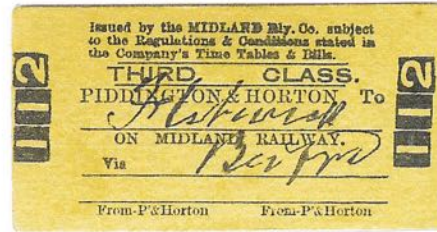 Issued by the MIDLAND Rly. Co. subject
to the Regulations & Conditions stated in
the Company's Time Tables & Bills.
THIRD CLASS.
PIDDINGTON & HORTON To
ON MIDLAND RAILWAY.
Via Bedford
From-P'&Horton From-P'&Horton
002
002